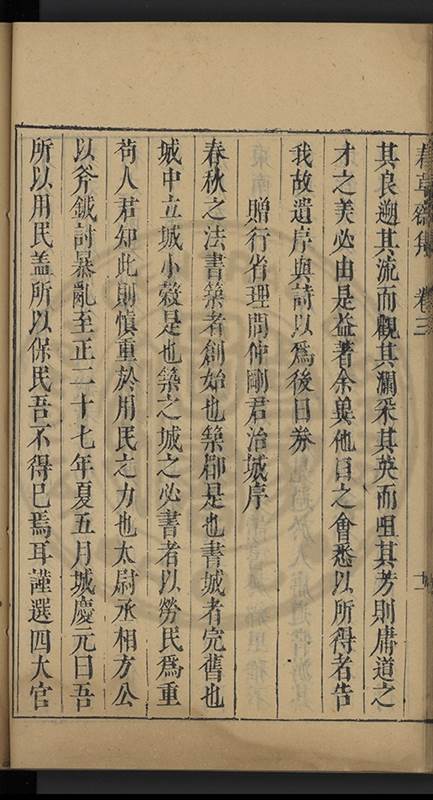 春草齋集 卷三 十一
其良遡其流而觀其瀾采其英而咀其芳則庸道之
才之美必由是益著余與他日之會悉以所得者告
我故遺序與詩以爲後日券
贈行省理問仲剛君治城序
春秋之法書築者創始也築郿是也書城者完舊也
城中立城小穀是也築之城之必書者以勞民爲重
苟人君知此則慎重於用民之力也太尉丞相方公
以斧鉞討暴亂至正二十七年夏五月城慶元曰吾
所以用民蓋所以保民吾不得已焉耳謹選四大官